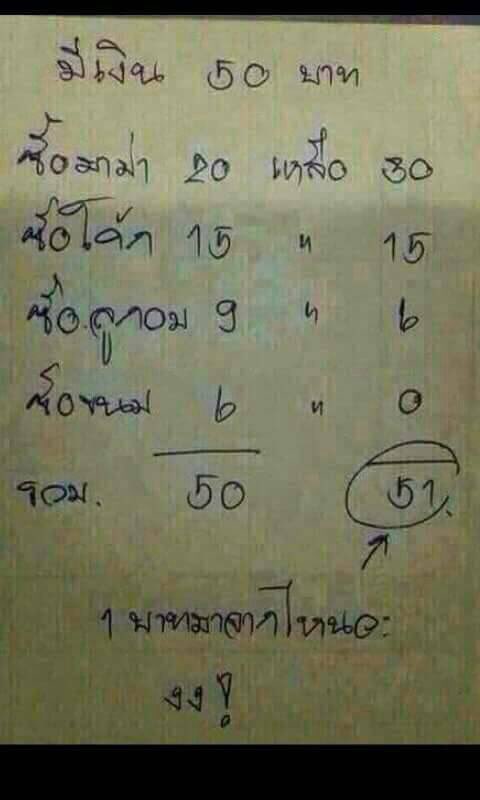 มีเงิน 50 บาท
ซื้อมาม่า 20 เหลือ 30
ซื้อโค้ก 15 " 15
ซื้อลูกอม 9 " 6
ซื้อขนม 6 " 0
รวม. 50 51.
1 บาทมาจากไหนอะ
งง!